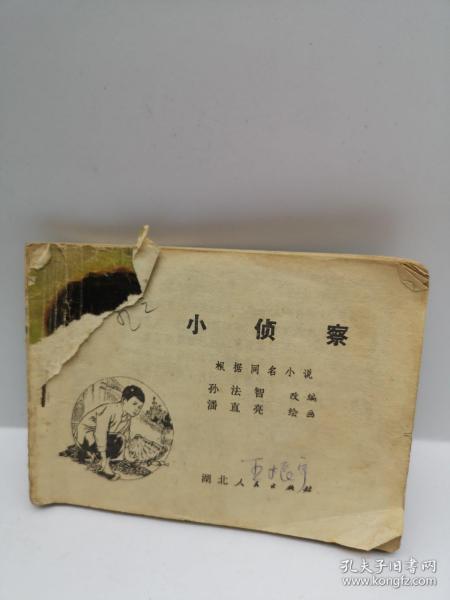 小侦察
根据同名小说
孙法智 改编
潘直亮 绘画
湖北人民出版社
孔夫子旧书网
www.kongfz.com